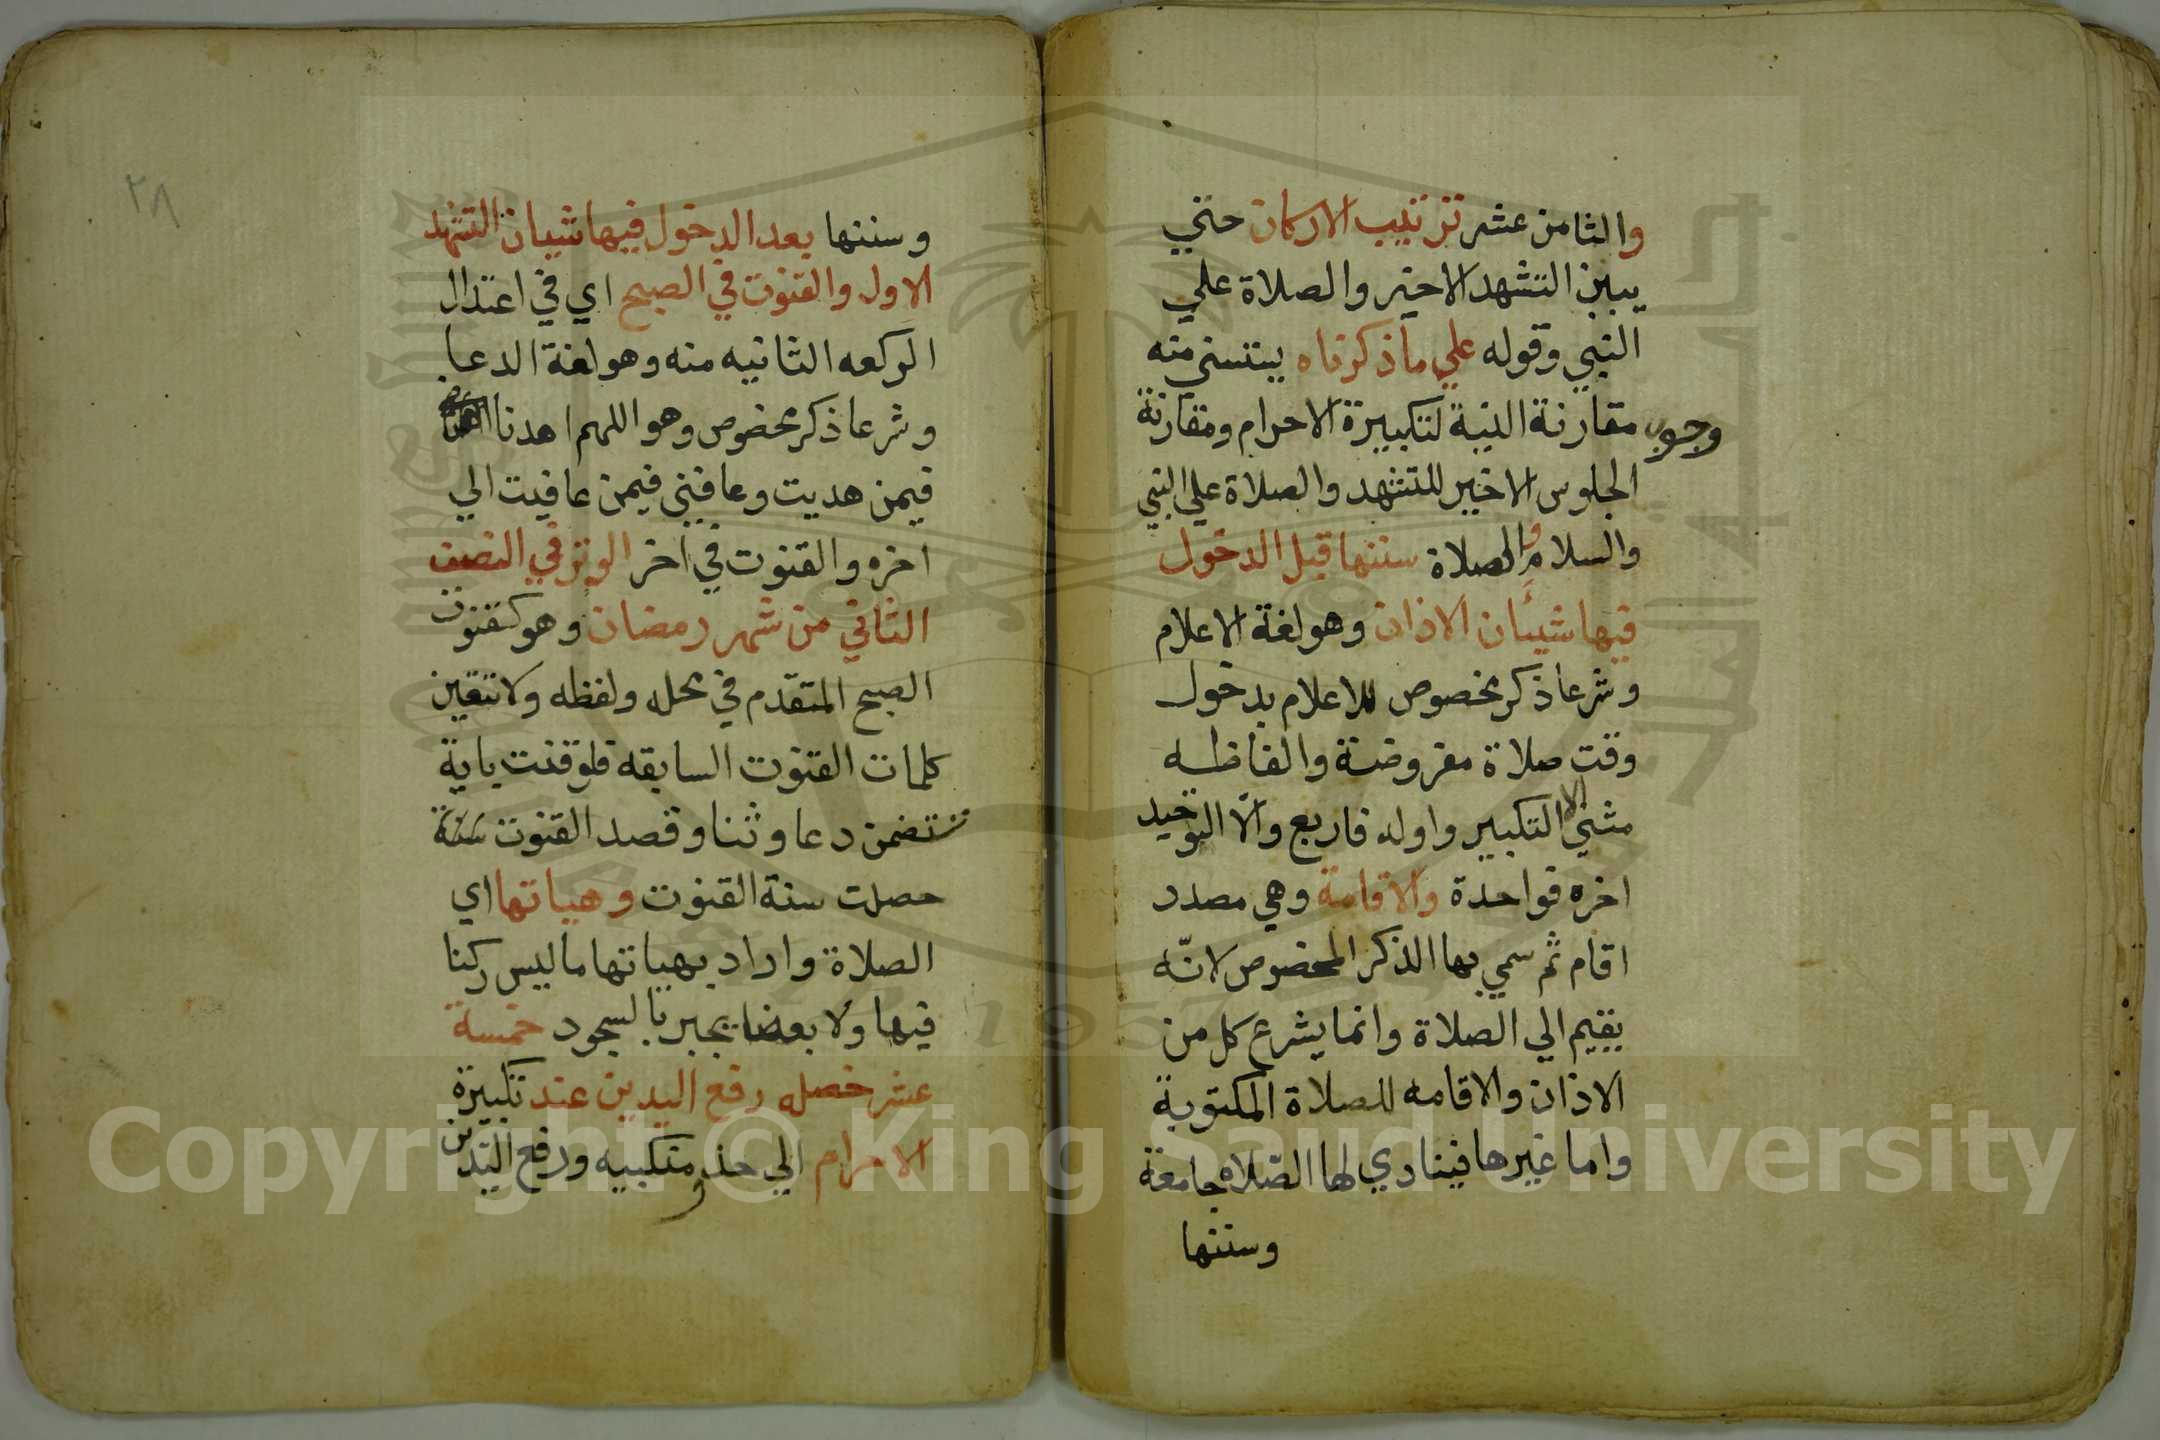 والثامن عشر ترتيب الاركان حتي
يبين التشهد الاخير والصلاة علي
النبي وقوله علي ما ذكرناه يستثني منه
وجوب مقارنة النية لتكبيرة الاحرام ومقارنة
الجلوس الاخير للتشهد والصلاة علي النبي
والسلام والصلاة سننها قبل الدخول
فيها شيئان الاذان وهو لغة الاعلام
وشرعا ذكر مخصوص للاعلام بدخول
وقت صلاة مفروضة والفاظه
مثني الا التكبير اوله فاربع والا التوحيد
اخره فواحدة والاقامة وهي مصدر
اقام ثم سمي بها الذكر المخصوص لانّه
يقيم الي الصلاة وانما يشرع كل من
الاذان والاقامه للصلاة المكتوبة
واما غيرها فينادي لها الصّلاه جامعة
وسننها
٢٨
وسننها بعد الدخول فيها شيان التشهد
الاول والقنوت في الصبح اي في اعتدال
الركعه الثانيه منه وهو لغة الدعا
وشرعا ذكر مخصوص وهو اللهم اهدنا
فيمن هديت وعافني فيمن عافيت الي
اخره والقنوت في اخر الوتر في النصف
الثاني من شهر رمضان وهو كقنوت
الصبح المتقدم في محله ولفظه ولا تتعين
كلمات القنوت السابقه فلو قنت باية
تتضمن دعا وثنا وقصد القنوت
حصلت سنة القنوت وهياتها اي
الصلاة واراد بهياتها ما ليس ركنا
فيها ولا بعضا يجبر بالسجود خمسة
عشر خصله رفع اليدين عند تكبيرة
الاحرام الي حذو منكبيه ورفع اليدين
Copyright © King Saud University
1957